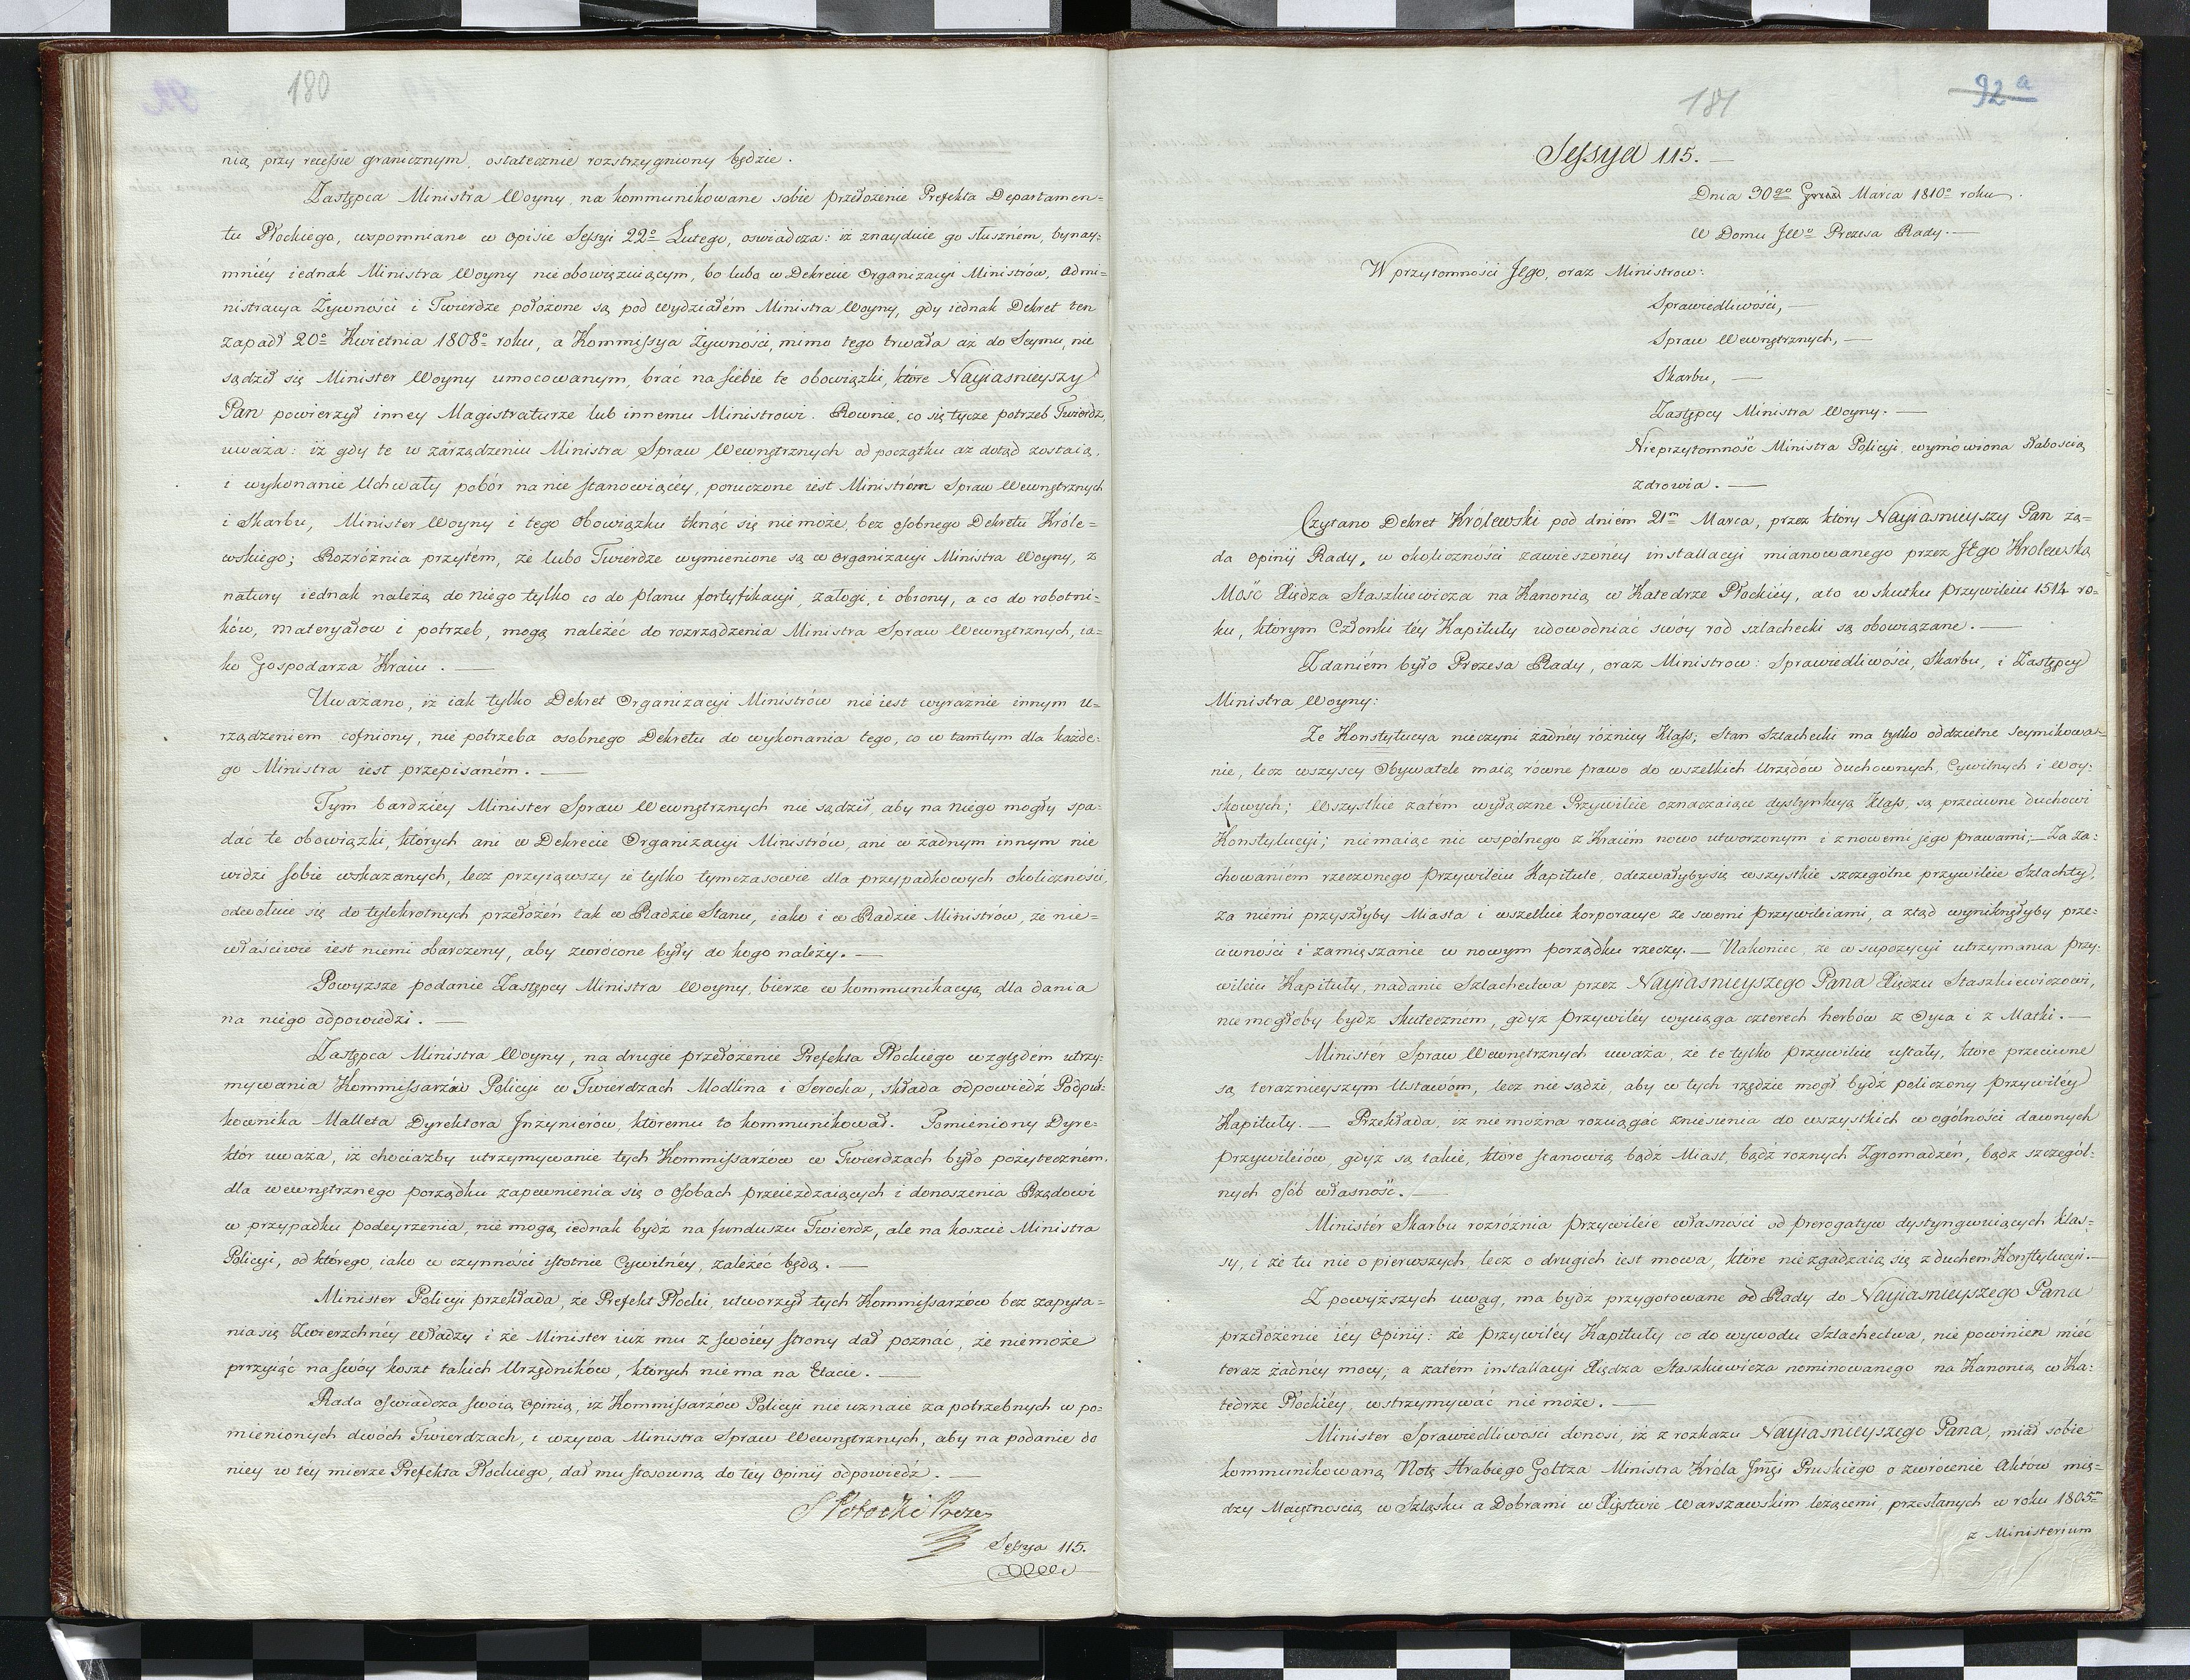 180
nią przy recessie granicznym, ostatecznie rozstrzygniony będzie.
Zastępca Ministra Woyny na kommunikowane sobie przełożenie Prefekta Departamen=
tu Płockiego, wspomniane w opisie Sessyi 22º Lutego, oswiadcza: iż znayduie go słuszném, bynay=
mniéy iednak Ministra Woyny nieobowiązuiącym, bo lubo w Dekrecie Organizacyi Ministrów, Admi=
nistracya Żywności i Twierdze położone są pod wydziałém Ministra Woyny, gdy iednak Dekret ten
zapadł 20º Kwietnia 1808º roku, a Kommissya Żywności, mimo tego trwała aż do Seymu, nie
sądził się Minister Woyny umocowanym, brać na siebie te obowiązki, które Nayiasnieyszy
Pan powierzył inney Magistraturze lub innemu Ministrowi. Rownie, co się tycze potrzeb Twierdz,
uważa: iż gdy te w zarządzeniu Ministra Spraw Wewnętrznych od początku aż dotąd zostaią,
i wykonanie Uchwały pobór na nie stanowiącéy, poruczone iest Ministróm Spraw Wewnętrznych
i Skarbu, Minister Woyny i tego obowiązku tknąć się niemoże, bez osobnego Dekretu Króle=
wskiego; Rozróżnia przytém, że lubo Twierdze wymienione są w organizacyi Ministra Woyny, z
natury iednak należą do niego tylko co do planu fortyfikacyi, załogi, i obrony, a co do robotni=
ków, materyałow i potrzeb, mogą należéć do rozrządzenia Ministra Spraw Wewnętrznych, ia=
ko Gospodarza Kraiu. —
Uważano, iż iak tylko Dekret Organizacyi Ministrów nie iest wyraźnie innym u=
rządzeniem cofniony, nie potrzeba osobnego Dekretu do wykonania tego, co w tamtym dla każde=
go Ministra iest przepisaném. —
Tym bardziey Minister Spraw Wewnętrznych nie sądził, aby na niego mogły spa=
dać te obowiązki, których ani w Dekrecie Organizacyi Ministrów, ani w żadnym innym nie
widzi sobie wskazanych, lecz przyiąwszy ie tylko tymczasowie dla przypadkowych okoliczności,
odwołuie się do tylekrotnych przełożeń tak w Radzie Stanu, iako i w Radzie Ministrów, że nie=
właściwie iest niemi obarczony, aby zwrócone były do kogo należy. —
Powyższe podanie Zastępcy Ministra Woyny, bierze w kommunikacyą dla dania
na niego odpowiedzi. —
Zastępca Ministra Woyny, na drugie przełożenie Prefekta Płockiego względém utrzy=
mywania Kommissarzów Policyi w Twierdzach Modlina i Serocka, składa odpowiedź Podpuł=
kownika Malleta Dyrektora Inżynierów, któremu to kommunikował. Pomieniony Dyre=
któr uważa, iż chociażby utrzymywanie tych Kommissarzów w Twierdzach było pożyteczném,
dla wewnętrznego porządku zapewnienia się o osobach przeieżdzaiących i donoszenia Rządowi
w przypadku podeyrzenia, nie mogą iednak bydź na funduszu Twierdz, ale na koszcie Ministra
Policyi, od którego, iako w czynności istotnie Cywilnéy, zależéć będą. —
Minister Policyi przekłada, że Prefekt Płocki, utworzył tych Kommissarzów bez zapyta=
nia się Zwierzchnéy Władzy i że Minister iuż mu z swoiéy strony dał poznać, że niemoże
przyiąć na swoy koszt takich Urzędników, których nie ma na Etacie. —
Rada oswiadcza swoią Opinią, iż Kommissarzów Policyi nie uznaie za potrzebnych w po=
mienionych dwóch Twierdzach, i wzywa Ministra Spraw Wewnętrznych, aby na podanie do
niey w téy mierze Prefekta Płockiego, dał mu stosowną do téy Opinii odpowiedź. —
S Potocki Prezes
Sessya 115.
181
92 a
Sessya 115. —
Dnia 30go Marca 1810º roku.
W Domu JWº Prezesa Rady. —
W przytomności Jego, oraz Ministrow:
Sprawiedliwości, —
Spraw Wewnętrznych, —
Skarbu, —
Zastępcy Ministra Woyny. —
Nieprzytomność Ministra Policyi, wymówiona słabością
zdrowia. —
Czytano Dekret Królewski pod dniem 21m Marca, przez który Nayiasnieyszy Pan żą=
da Opinii Rady, w okoliczności zawieszonéy installacyi mianowanego przez Jego Krolewską
Mość Xiędza Staszkiewicza na Kanonią w Katedrze Płockiéy, a to w skutku przywileiu 1514 ro=
ku, którym Członki téy Kapituły udowodniać swóy rod szlachecki są obowiązane. —
Zdaniém było Prezesa Rady, oraz Ministrow: Sprawiedliwości, Skarbu, i Zastępcy
Ministra Woyny:
Że Konstytucya nieczyni żadnéy różnicy Klass; Stan Szlachecki ma tylko oddzielne seymikowa=
nie, lecz wszyscy Obywatele maią równe prawo do wszelkich Urzędów duchownych, Cywilnych i Woy=
skowych; Wszystkie zatém wyłączne Przywileie oznaczaiące dystynkcyą Klass, są przeciwne duchowi
Konstytucyi; niemaiąc nic wspólnego z Kraiém nowo utworzonym i z nowemi jego prawami; — Za za=
chowaniém rzeczonego przywileiu Kapitule, odezwałyby się wszystkie szczególne przywileie Szlachty,
za niémi przyszłyby Miasta i wszelkie korporacye ze swemi przywileiami, a ztąd wyniknęłyby prze=
ciwności i zamięszanie w nowym porządku rzeczy. — Nakoniec, że w supozycyi utrzymania przy=
wileiu Kapituły, nadanie Szlachectwa przez Nayiasnieyszego Pana Xiędzu Staszkiewiczowi,
nie mogłoby bydź skuteczném, gdyż przywiléy wyciąga czterech herbów z Oyca i z Matki. —
Ministér Spraw Wewnętrznych uważa, że te tylko przywileie ustały, które przeciwne
są teraznieyszym Ustawóm, lecz nie sądzi, aby w tych rzędzie mogł bydź policzony przywiléy
Kapituły. — Przekłada, iż nie można rozciągać zniesienia do wszystkich w ogólności dawnych
przywileiów, gdyż są takie, które stanowią bądź Miast, bądź roznych Zgromadzéń, bądz szczegól=
nych osób własność. —
Ministér Skarbu rozróżnia przywileie własności od prerogatyw dystyngwuiących klas=
sy, i że tu nie o pierwszych, lecz o drugich iest mowa, które niezgadzaią się z duchem Konstytucyi. —
Z powyższych uwag, ma bydź przygotowane od Rady do Nayiasnieyszego Pana
przełożenie iéy Opinii: że przywiléy Kapituły co do wywodu Szlachectwa, nie powinien mieć
teraz żadnéy mocy; a zatém installacyi Xiędza Staszkiewicza nominowanego na Kanonią w Ka=
tedrze Płockiéy, wstrzymywać nie może. —
Minister Sprawiedliwości donosi, iż z rozkazu Nayiasnieyszego Pana, miał sobie
kommunikowaną Notę Hrabiego Goltza Ministra Króla Jmći Pruskiego o zwrócenie Aktów mię=
dzy Maiętnością w Szląsku a Dobrami w Xięstwie Warszawskim leżącemi, przesłanych w roku 1805m
z Ministerium